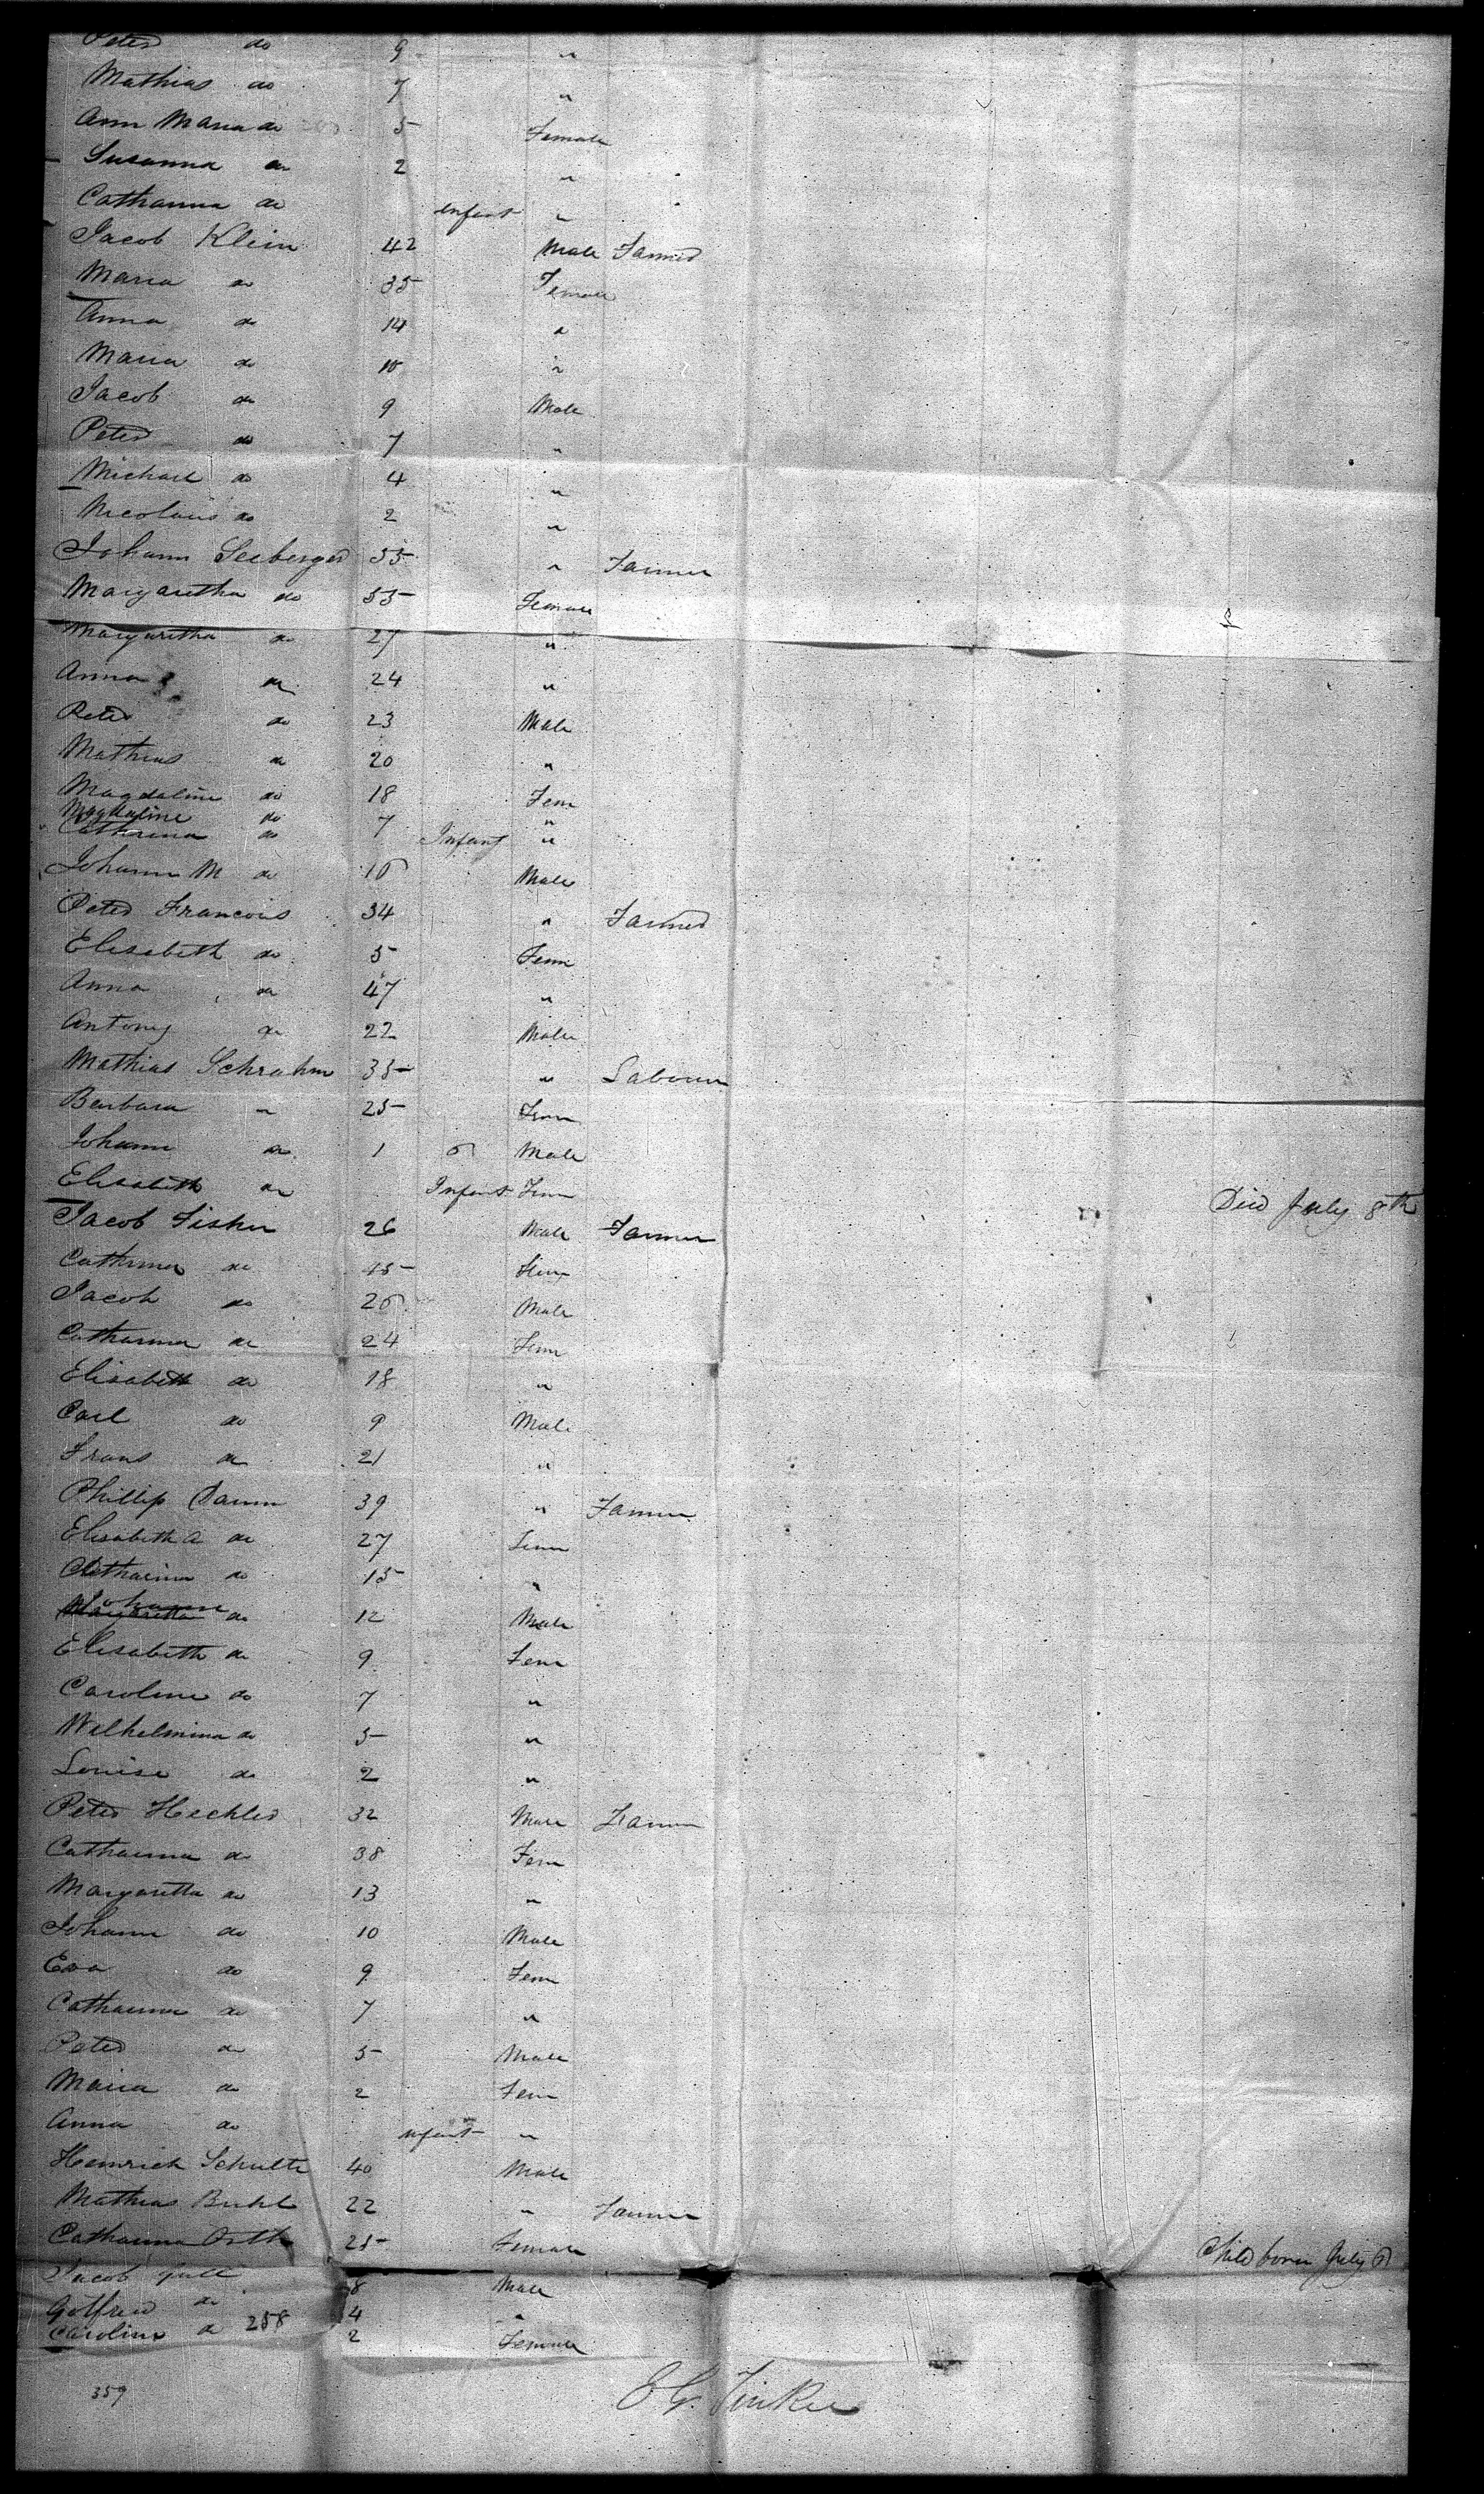 Peter do 9 "
Mathias do 7 "
Ann Maria do 5 Female
Susanna do 2 "
Catharina do Infant "
Jacob Klein 42 Male Farmer
Maria do 35 Female
Anna do 14 "
Maria do 10 "
Jacob do 9 Male
Peter do 7 "
Michael do 4 "
Nicolaus do 2 "
Johann Seeberger 55 " Farmer
Margaretha do 55 Female
Margaretha do 27 "
Anna do 24 "
Peter do 23 Male
Mathias do 20 "
Magdaline do 18 Fem
Magdaline do 7 "
Catharina do Infant "
Johann M do 10 Male
Peter Francois 34 " Farmer
Elisabeth do 5 Fem
Anna do 47 "
Antony do 22 Male
Mathias Schrahm 35 " Labourer
Barbara " 25 Fem
Johann do 1 6 Male
Elisabeth do Infant Fem Died July 8th
Jacob Fisher 26 Male Farmer
Catharina do 45 Fem
Jacob do 20 Male
Catharina do 24 Fem
Elisabeth do 18 "
Carl do 9 Male
Frans do 21 "
Phillip Damm 39 " Farmer
Elisabeth A do 27 Fem
Catharina do 15 "
Johann do 12 Male
Elisabeth do 9 Fem
Caroline do 7 "
Wilhelmina do 5 "
Louise do 2 "
Peter Hechler 32 Male Farmer
Catharina do 38 Fem
Margaretta do 13 "
Johann do 10 Male
Eva do 9 Fem
Catharina do 7 "
Peter do 5 Male
Maria do 2 Fem
Anna do Infant "
Heinrich Schulte 40 Male
Mathias Buhl 22 " Farmer
Catharina Orth 25 Female Child born July
Jacob 8 Male
Gotfried do 4 "
Caroline do 258 2 Female
359
E G. Tinker